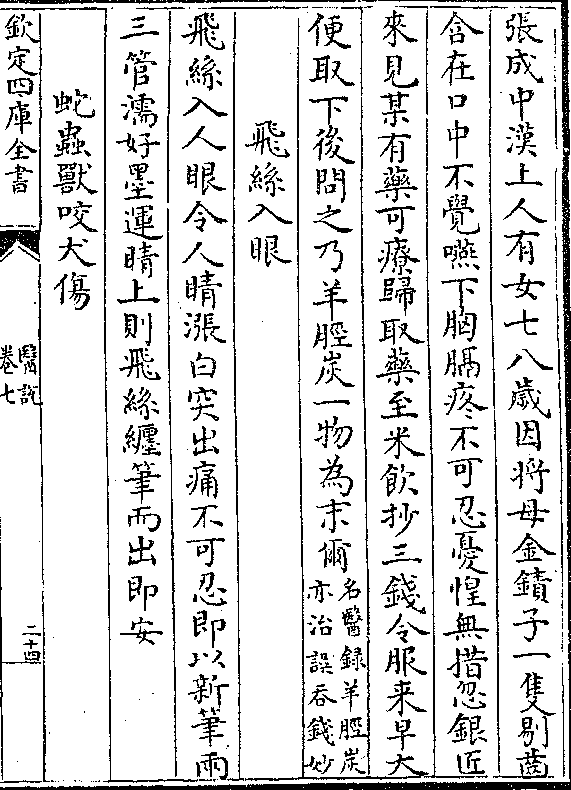 張成中漢上人有女七八歲因將母金鐀子一隻剔齒
含在口中不覺嚥下胸膈疼不可忍憂惶無措忽銀匠
來見某有藥可療歸取藥至米飲抄三錢令服来早大
便取下後問之乃羊脛炭一物為末爾名醫録羊脛炭
亦治誤吞錢妙
飛絲入眼
飛絲入人眼令人睛漲白突出痛不可忍即以新筆兩
三管濡好墨運睛上則飛絲纏筆而出即安
蛇蟲獸咬犬傷
欽定四庫全書
醫說
卷七
二十四